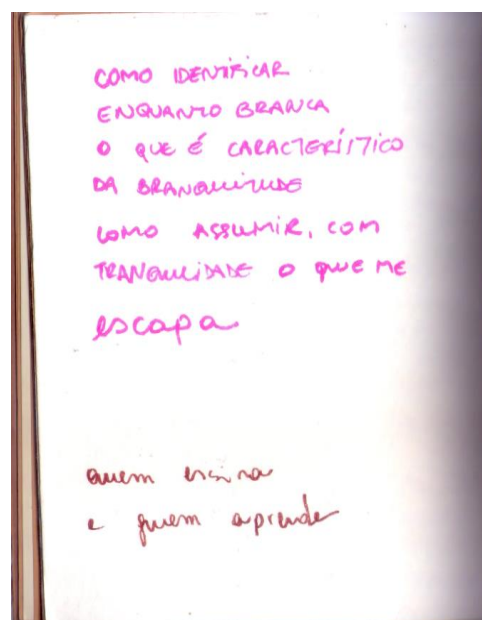 COMO IDENTIFICAR
ENQUANTO BRANCA
O QUE É CARACTERÍSTICO
DA BRANQUITUDE
COMO ASSUMIR, COM
TRANQUILIDADE O QUE ME
escapa
quem ensina
e quem aprende